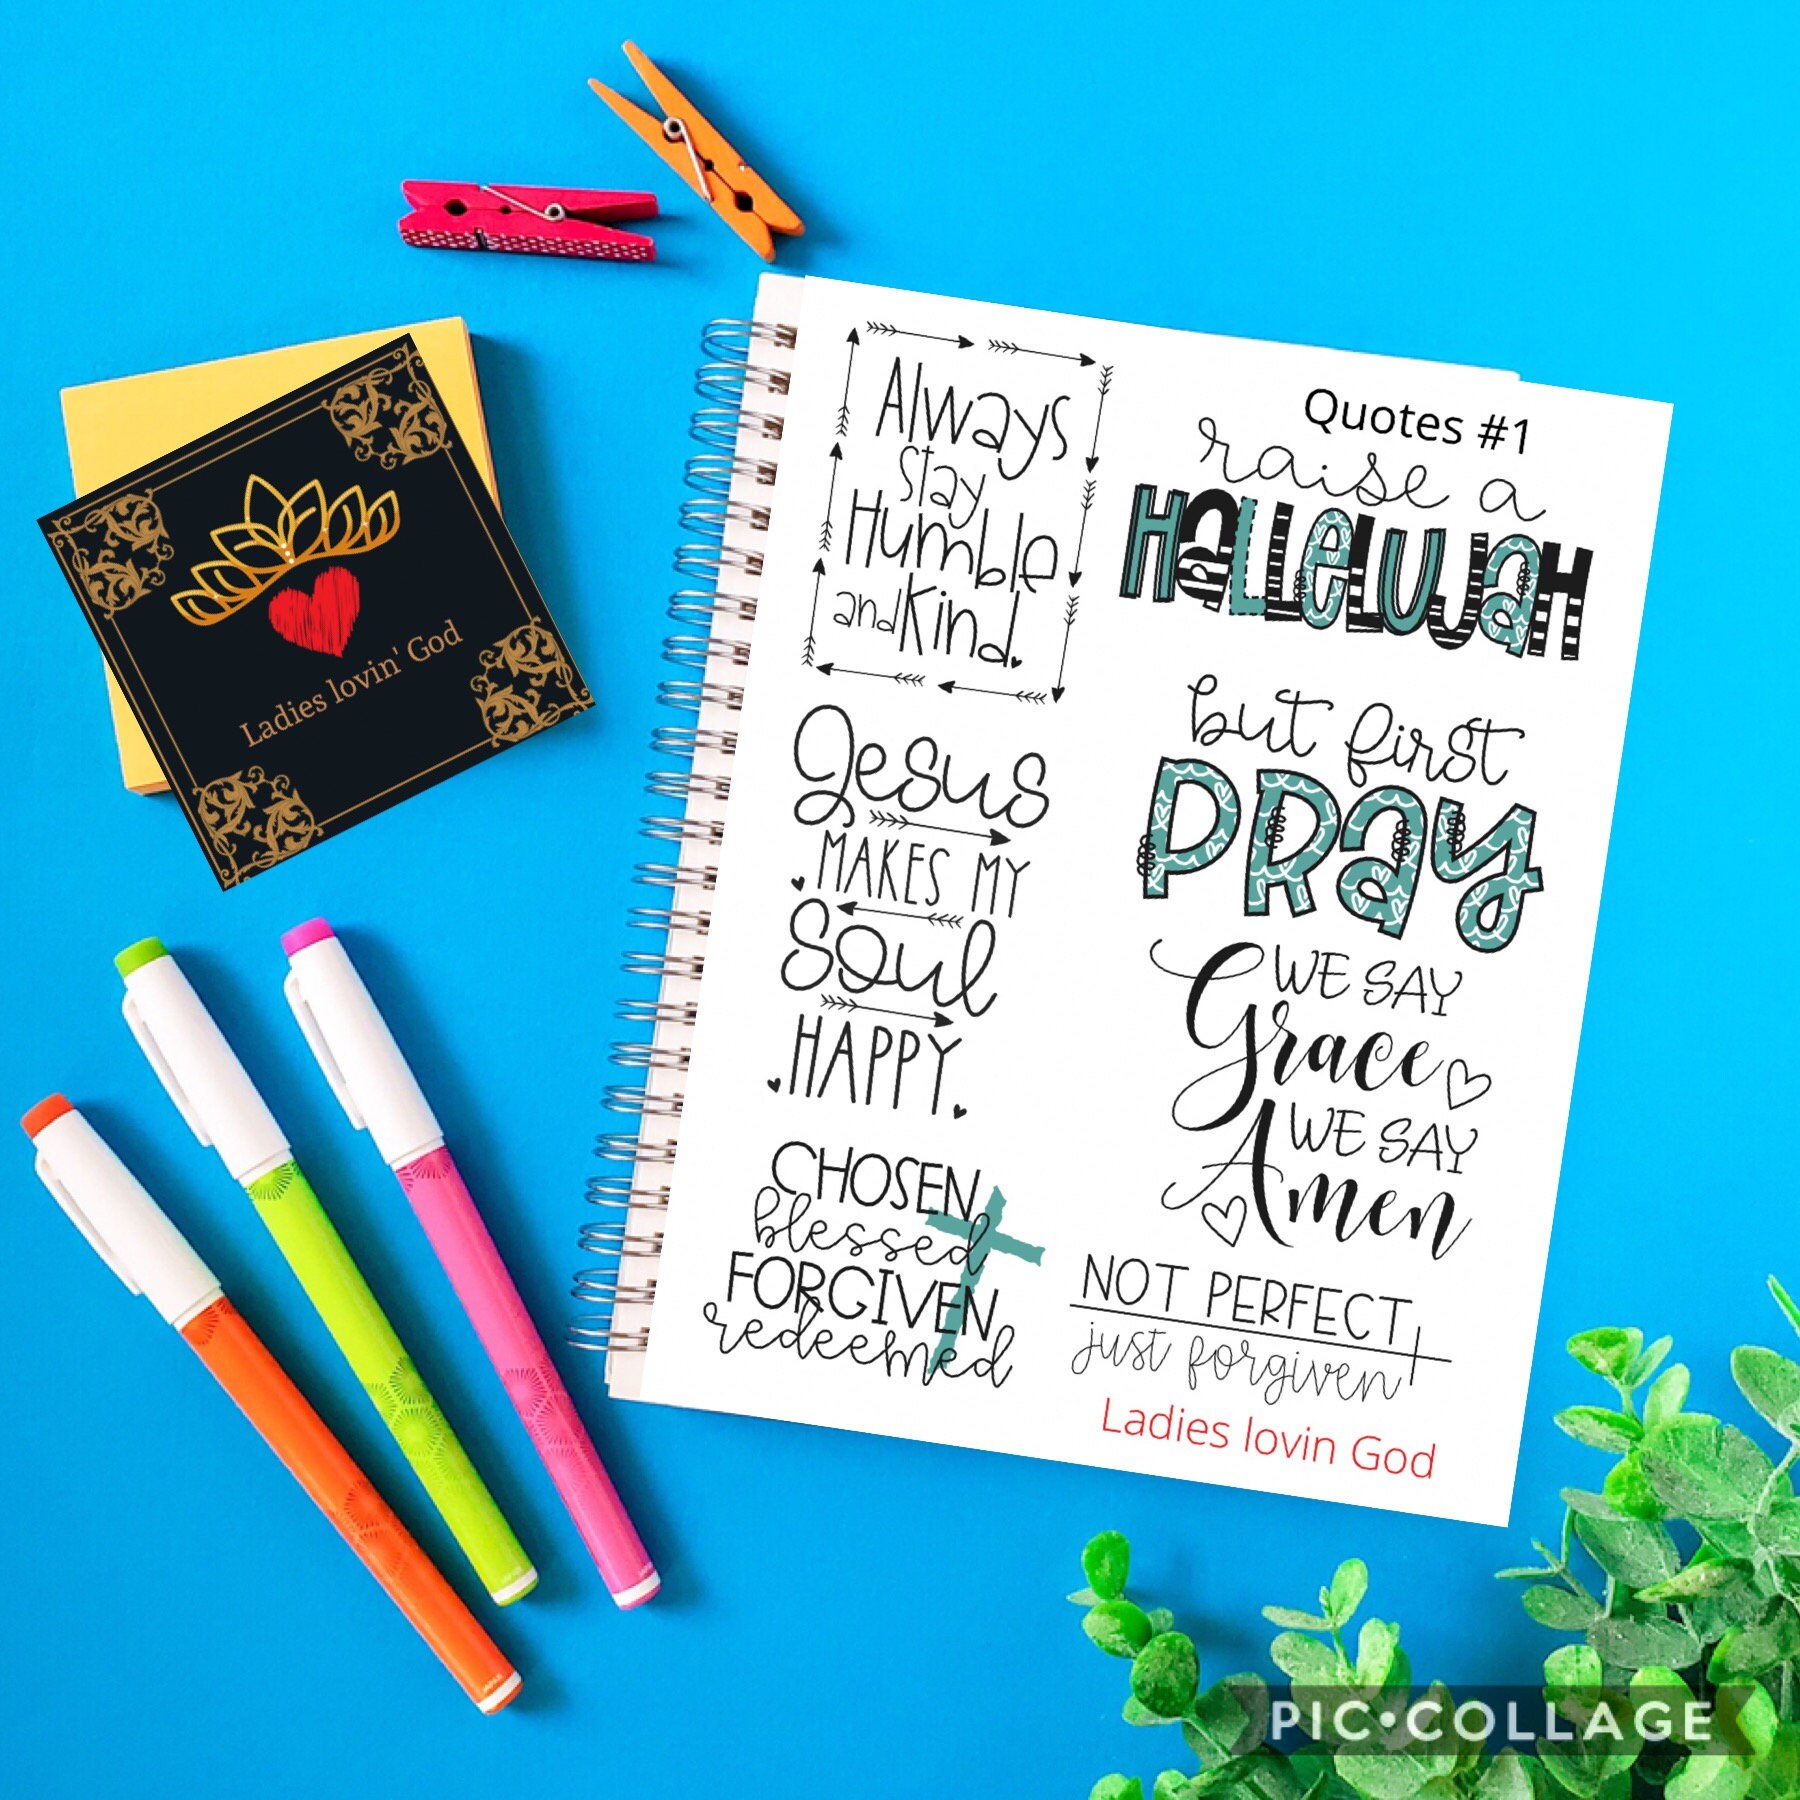 Ladies lovin' God
Always
stay
Humble
and Kind.
Jesus
MAKES MY
SOUL
HAPPY
CHOSEN
blessed
FORGIVEN
redeemed
Quotes #1
raise a
HALLELUJAH
but first
PRAY
WE SAY
Grace
WE SAY
Amen
NOT PERFECT
just forgiven
Ladies lovin God
PIC•COLLAGE